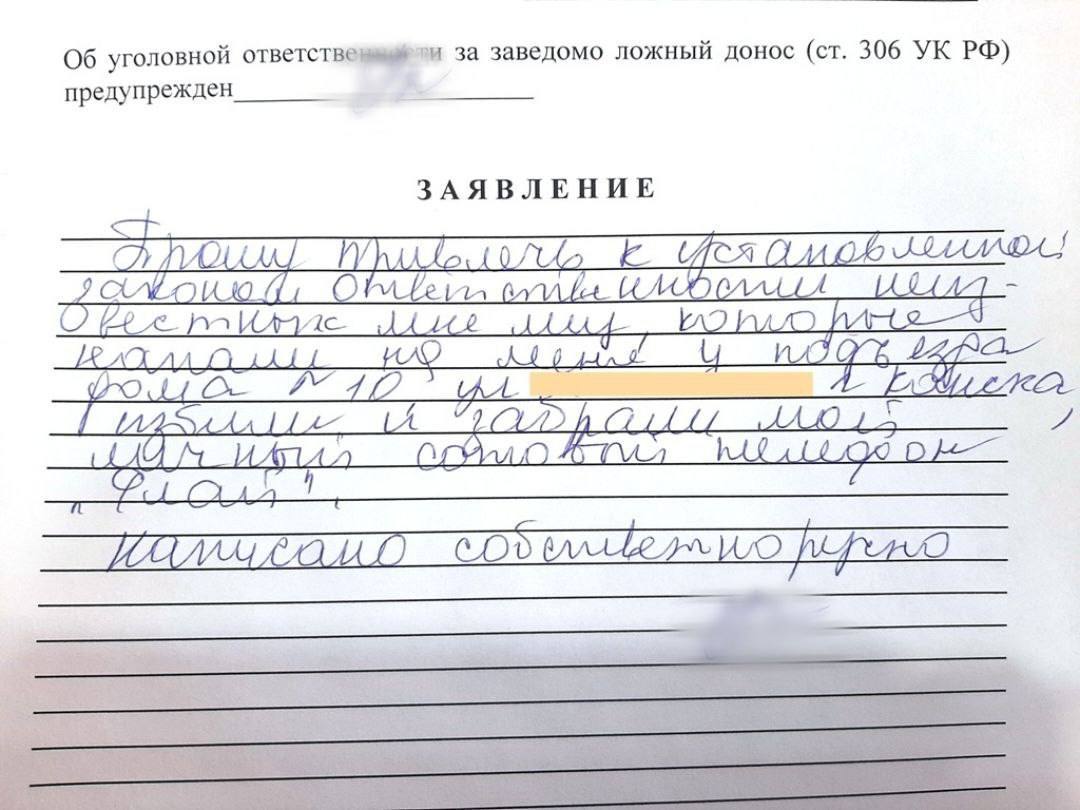 Об уголовной ответственности за заведомо ложный донос (ст. 306 УК РФ)
предупрежден
ЗАЯВЛЕНИЕ
Прошу привлечь к установленной
законом ответственности неиз-
вестных мне лиц, которые
напали на меня у подъезда
дома №10 ул г Канска,
избили и забрали мой
личный сотовый телефон
"Флай".
Написано собственноручно